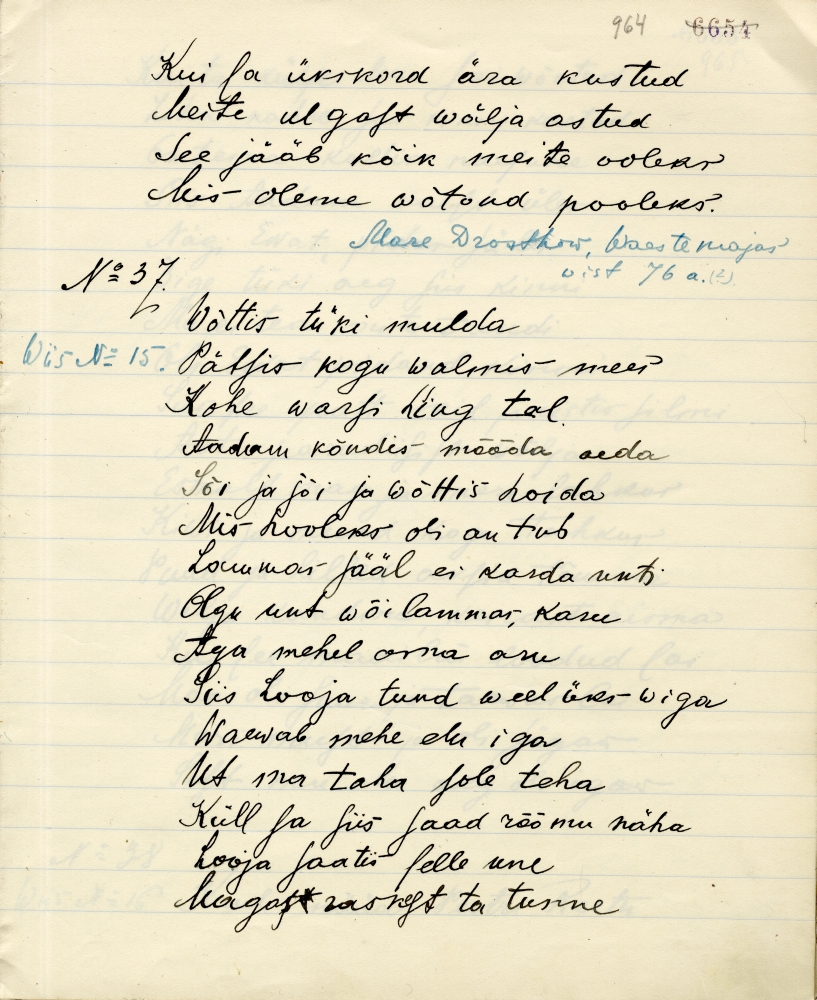 964 6654
Kui sa ükskord ära kustud
Meite ulgast wälja astud
See jääb kõik meite ooleks
Mis oleme wõtnud pooleks.
Mare Drosthow, Waestemajas
wist 76 a. (?)
No 37.
Wõttis tüki mulda
Wiis No 15. Pätsis kogu walmis mees
Kohe warsi hing tal.
Aadam kõndis mööda aeda
Sõi ja jõi ja wõttis hoida
Mis hooleks oli antub
Lammas sääl ei karda unti
Olgu unt wõi lammas, karu
Aga mehel oma aru
Siis Looja tund weel üks wiga
Waewab mehe elu iga
Ut ma taha sole teha
Küll sa siis saad rõõmu näha
Looja saatis selle une
Magast raskest ta tunne